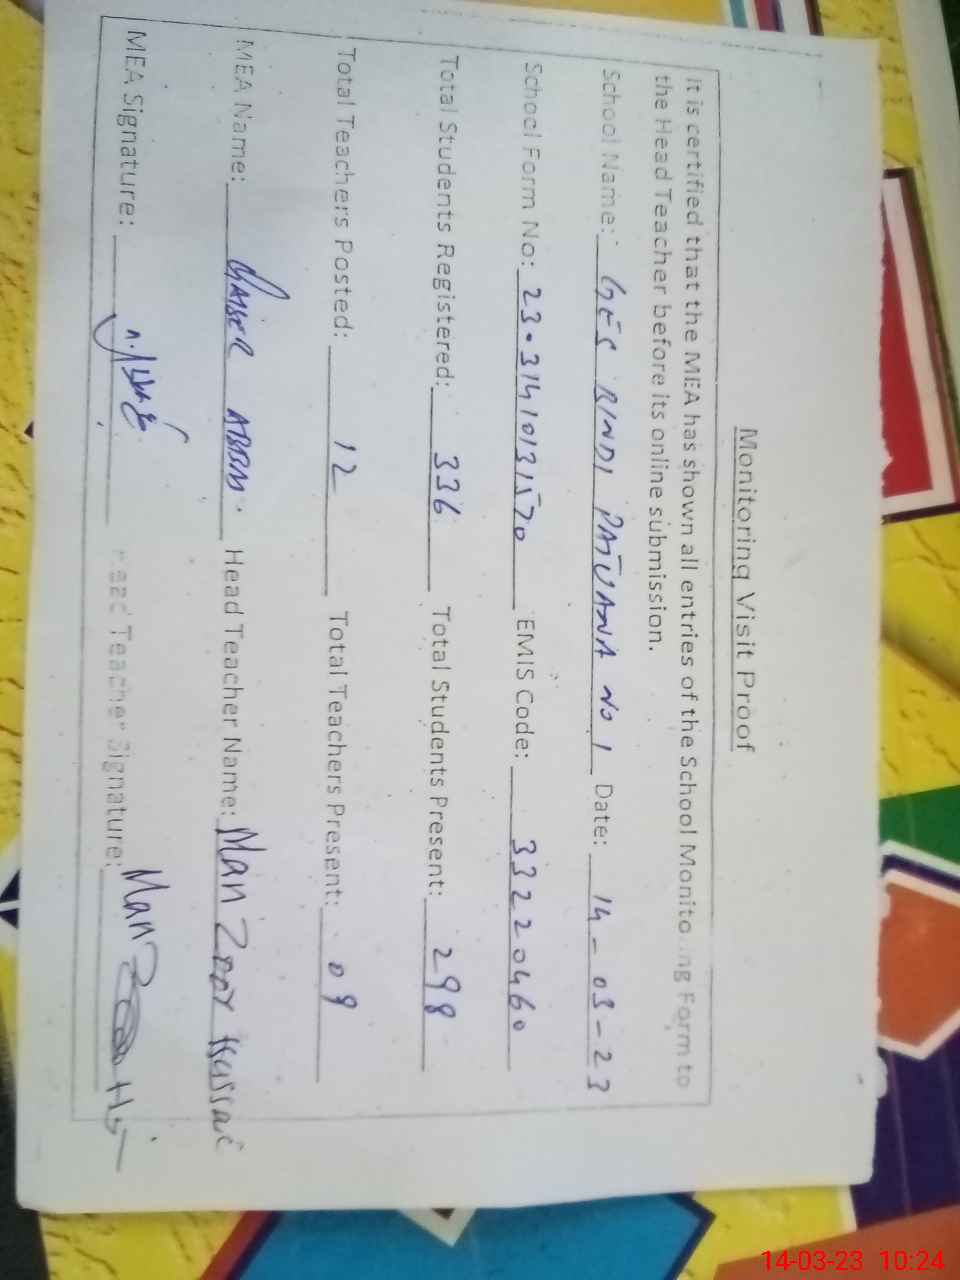 Monitoring Visit Proof
It is certified that the MEA has shown all entries of the School Monito ing Form to
the Head Teacher before its online submission.
School Name: GES RINDI PAJUANA NO 1 Date: 14-03-23
School Form No: 23.31410131570 EMIS Code: 33220460
Total Students Registered: 336 Total Students Present: 298
Total Teachers Posted: 12 Total Teachers Present: 09
MEA Name: QAISER ABBAS. Head Teacher Name: ManZoor Hussai
MEA Signature: Head Teacher Signature: ManZ
14-03-23 10:24